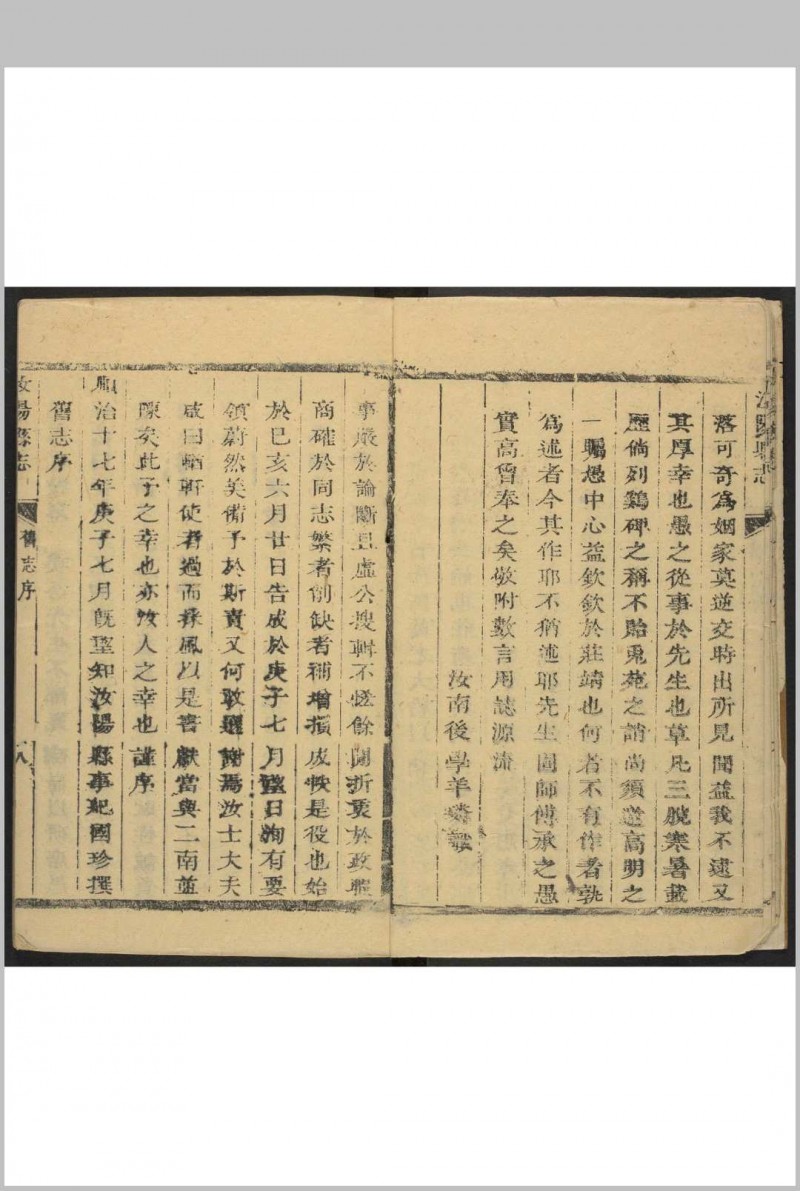 汝陽縣志
落可奇為姻家莫逆交時出所見聞益我不逮又
其厚幸也愚之從事於先生也草凡三脫寒暑載
歷倘列鷄碑之稱不貽兎苑之誚尚須高明之
一賜愚中心益欽欽於莊靖也何者不有作者孰
為述者今其作耶不猶述耶先生固師傅承之愚
實高曾奉之矣敬附數言用誌源流
汝南後學羊璘
事嚴於論斷且虛公搜輯不憖餘閒折衷於政暇
商確於同志繁者削缺者補增損成帙是役也始
於己亥六月廿日告成於庚子七月望日洵有要
領蔚然美備予於斯責又何敢遜謝焉汝士大夫
咸曰輶軒使者過而采風以是書獻當與二南並
陳矣此予之幸也亦汝人之幸也謹序
順治十七年庚子七月既望知汝陽縣事紀國珍撰
舊志序
汝陽縣志
舊志序
八